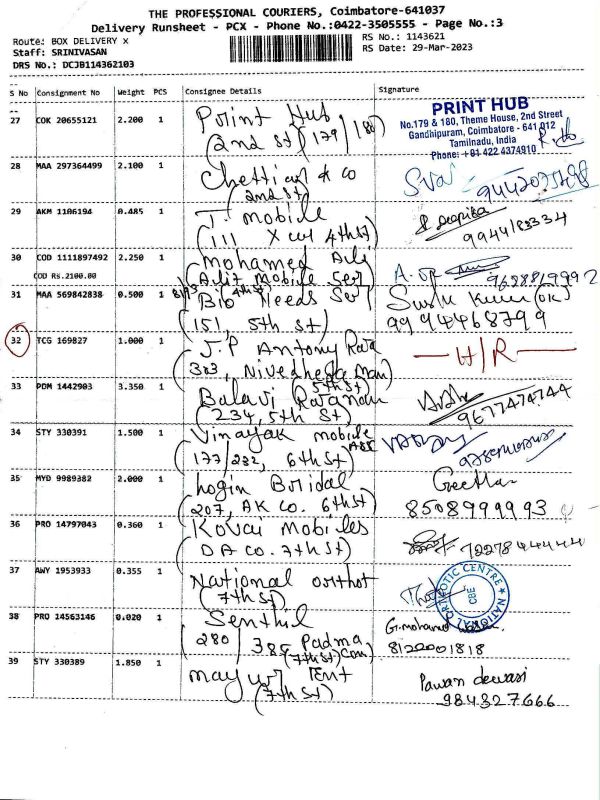 THE PROFESSIONAL COURIERS, Coimbatore-641037
Delivery Runsheet - PCX - Phone No.:0422-3505555 - Page No.:3
Route: BOX DELIVERY x
Staff: SRINIVASAN
DRS No.: DCJB114362103
RS No.: 1143621
RS Date: 29-Mar-2023
S No Consignment No Weight PCS Consignee Details Signature
27 COK 20655121 2.200 1 Print Hub
(2nd St (179/180)
PRINT HUB
No.179 & 180, Theme House, 2nd Street
Gandhipuram, Coimbatore - 641 012
Tamilnadu, India
Phone: +91 422 4374910
28 MAA 297364499 2.100 1 Chettiar & Co
(2nd St)
29 AKM 1106194 0.485 1 T. mobile
(111 X cut 4th St)
9944183334
30 COD 1111897492 2.250 1 Mohamed
COD Rs.2100.00 Mobile Ser
31 MAA 569842838 0.500 1 Bio Needs Ser
(151, 5th St)
9994468799
32 TCG 169827 1.000 1 J.P Antony
303,
(5th St)
H/R
33 PDM 1442903 3.350 1 Balavi
(234, 5th St)
9677474744
34 STY 330391 1.500 1 Vinayak mobile
(177/232, 6th St)
35 MYD 9989382 2.000 1 Login Bridal
(207, AK Co. 6th St)
Geetha
8508999993
36 PRO 14797043 0.360 1 Kovai Mobiles
(DA Co. 7th St)
37 AWY 1953933 0.355 1 National orthot
(7th St)
NATIONAL ORTHOTIC CENTRE
CBE
38 PRO 14563146 0.020 1 Senthil
280/ Padma
(7th St) Com)
G. mohamed
8122001818
39 STY 330389 1.850 1 mayur Tent
(7th St)
Pawan dewasi
984327666